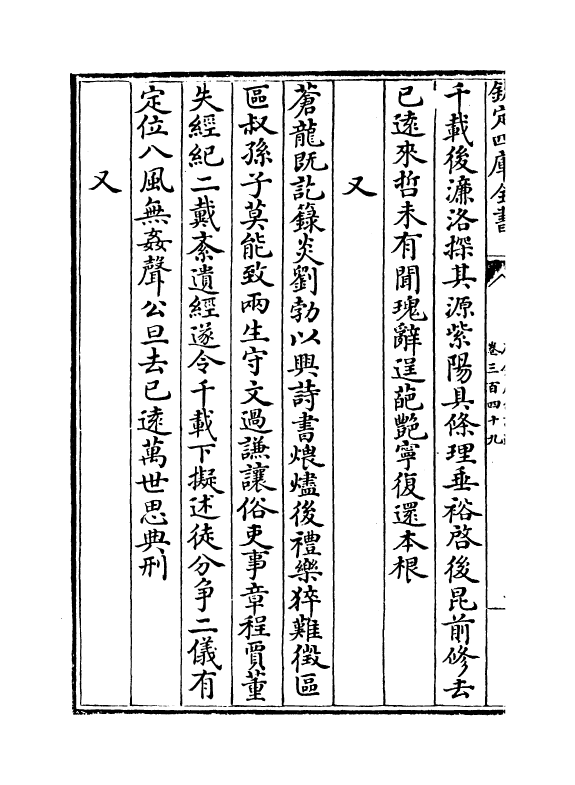 欽定四庫全書
卷三百四十九
千載後濂洛探其源紫陽具條理垂裕啓後昆前修去
已遠來哲未有聞瑰辭逞葩艷寧復還本根
又
蒼龍既訖籙炎劉勃以興詩書煨燼後禮樂猝難徵區
區叔孫子莫能致兩生守文過謙讓俗吏事章程賈董
失經紀二戴紊遺經遂令千載下擬述徒分争二儀有
定位八風無姦聲公旦去已遠萬世思典刑
又